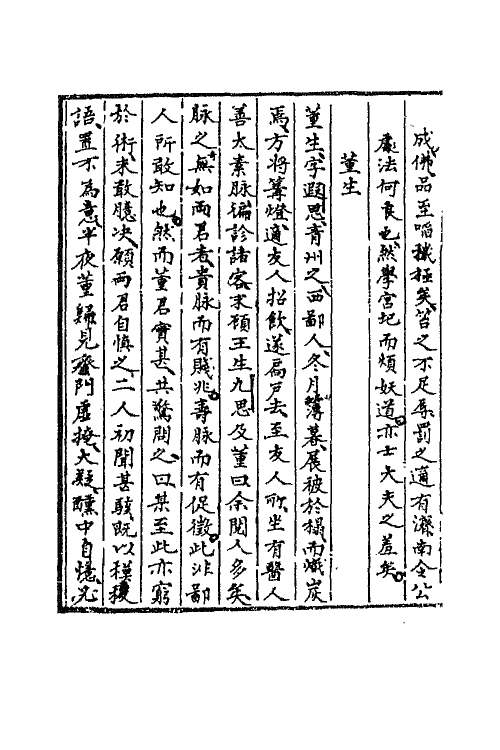 成佛品至啗穢極矣笞之不足辱罰之適有濟南令公
處法何良也然學宮圮而煩妖道亦士大夫之羞矣
董生
董生字遐思青州之西鄙人冬月薄暮展被於榻而熾炭
焉方將篝燈適友人招飲遂扃戶去至友人所坐有醫人
善太素脉徧診諸客末顧王生九思及董曰余閱人多矣
脉之無如兩君者貴脉而有賤兆壽脉而有促徵此非鄙
人所敢知也然而董君實甚共驚問之曰某至此亦窮
於術未敢臆决願兩君自慎之二人初聞甚駭既以模稜
語置不為意半夜董歸見齋門虛掩大疑醺中自憶必